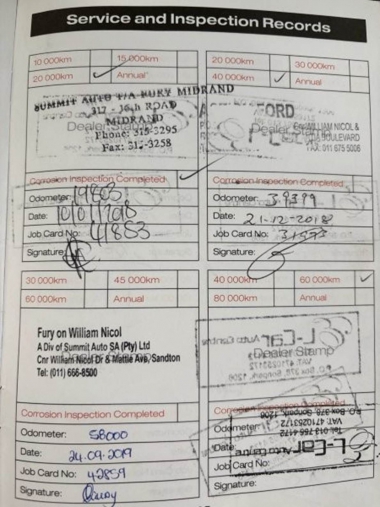 Service and Inspection Records
10 000km 15 000km
20 000km Annual
SUMMIT AUTO T/A FURY MIDRAND
317 - 16th ROAD
MIDRAND
Dealer Stamp
Phone: 315-3295
Fax: 315-3258
Corrosion Inspection Completed
Odometer: 19803
Date:
Job Card No: 41853
Signature:
20 000km 30 000km
40 000km Annual
FORD
WILLIAM NICOL &
BOULEVARD
Dealer
FAX: 011 675 5006
Corrosion Inspection Completed
Odometer: 39399
Date: 21-12-2018
Job Card No:
Signature:
30 000km 45 000km
60 000km Annual
Fury on William Nicol
A Div of Summit Auto SA (Pty) Ltd
Cnr William Nicol Dr & Mattie Ave, Sandton
Tel: (011) 666-8500
Corrosion Inspection Completed
Odometer: 58000
Date: 24.09.2019
Job Card No: 42859
Signature:
40 000km 60 000km
80 000km Annual
L-Car Auto Centre
Dealer Stamp
Corrosion Inspection Completed
P.O. Box 378, Sonpark, 1206
Odometer:
VAT: 4710253172
Date:
L-Car Auto Centre
Job Card No:
Signature: